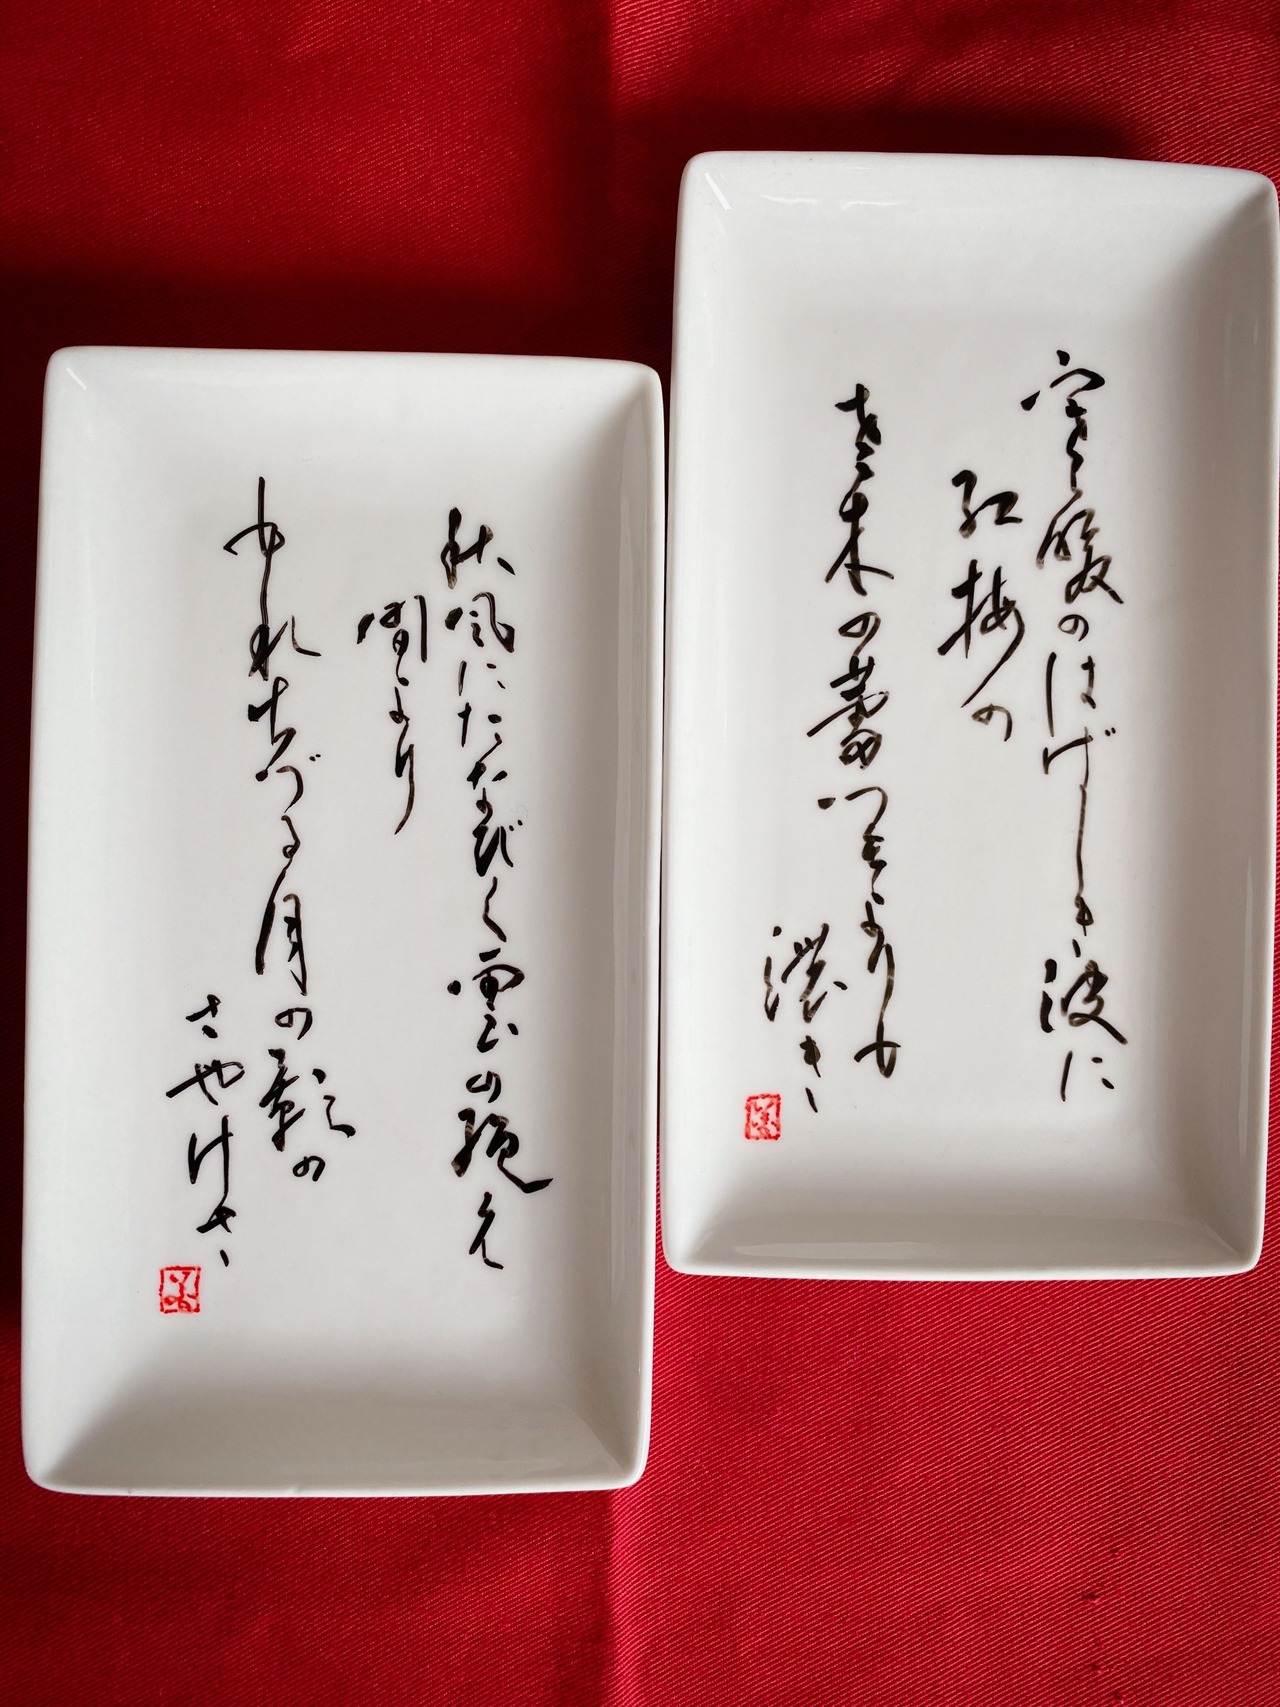 寒暖のはげしき波に
紅梅の
老木の蕾いつもよりも
濃き
秋風にたなびく雲の絶え
間より
もれ出づる月の影の
さやけさ